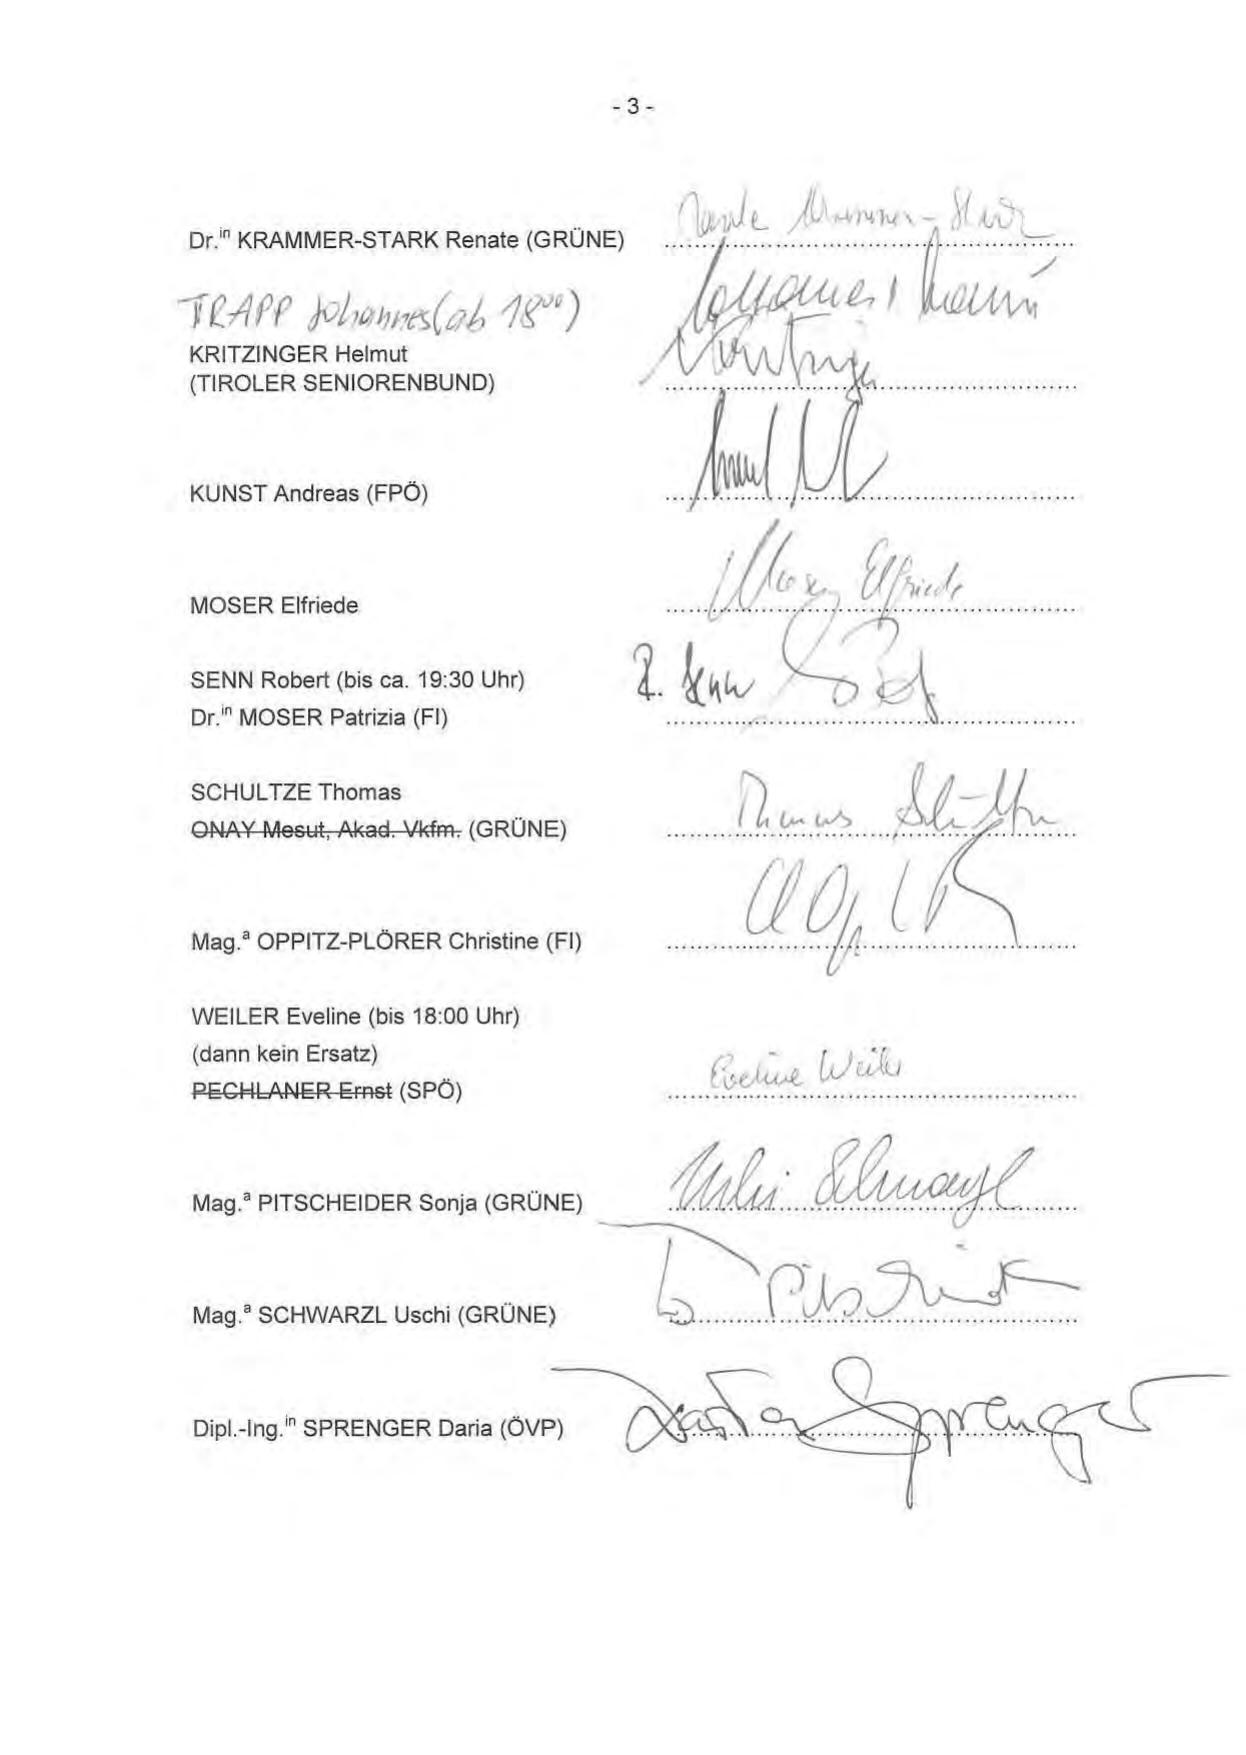 - 3 -
Dr.in KRAMMER-STARK Renate (GRÜNE) Renate Krammer-Stark
TRAPP Johannes (ab 18⁰⁰) Johannes
KRITZINGER Helmut Kritzinger
(TIROLER SENIORENBUND)
KUNST Andreas (FPÖ)
MOSER Elfriede Moser Elfriede
SENN Robert (bis ca. 19:30 Uhr) R. Senn
Dr.in MOSER Patrizia (FI)
SCHULTZE Thomas Thomas Schultze
ONAY Mesut, Akad. Vkfm. (GRÜNE)
Mag.a OPPITZ-PLÖRER Christine (FI)
WEILER Eveline (bis 18:00 Uhr)
(dann kein Ersatz)
Eveline Weiler
PECHLANER Ernst (SPÖ)
Mag.a PITSCHEIDER Sonja (GRÜNE) Uschi Schwarzl
Mag.a SCHWARZL Uschi (GRÜNE) Pitscheider
Dipl.-Ing.in SPRENGER Daria (ÖVP) Daria Sprenger